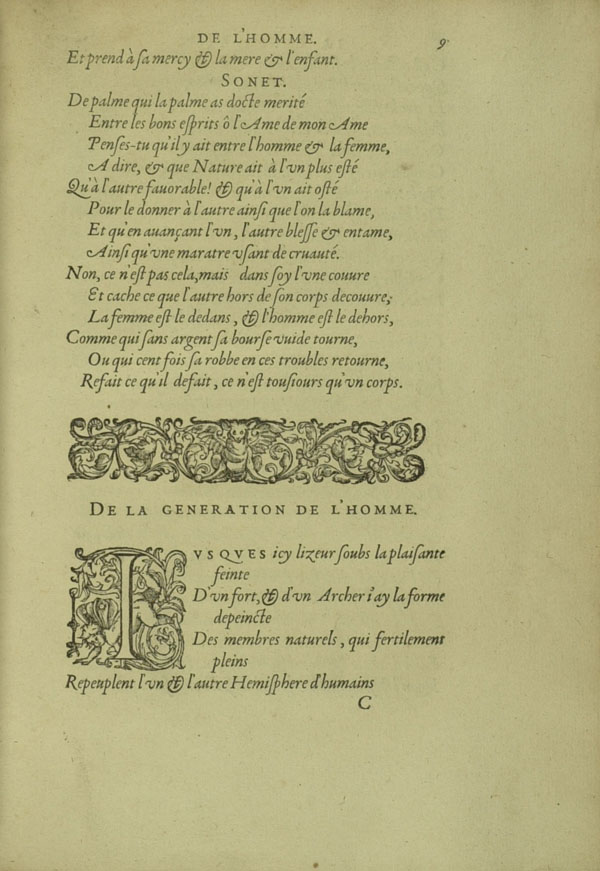 DE L'HOMME. 9
Et prend à sa mercy & la mere & l'enfant.
SONET.
De palme qui la palme as docte merité
Entre les bons esprits ô l'Ame de mon Ame
Penses-tu qu'il y ait entre l'homme & la femme,
A dire, & que Nature ait à l'vn plus esté
Qu'à l'autre fauorable! & qu'à l'vn ait osté
Pour le donner à l'autre ainsi que l'on la blame,
Et qu'en auançant l'vn, l'autre blesse & entame,
Ainsi qu'vne maratre vsant de cruauté.
Non, ce n'est pas cela, mais dans soy l'vne couure
Et cache ce que l'autre hors de son corps decouure;
La femme est le dedans, & l'homme est le dehors,
Comme qui sans argent sa bourse vuide tourne,
Ou qui cent fois sa robbe en ces troubles retourne,
Refait ce qu'il defait, ce n'est tousiours qu'vn corps.
DE LA GENERATION DE L'HOMME.
IVSQVES icy lizeur soubs la plaisante
feinte
D'vn fort, & d'vn Archer i'ay la forme
depeincte
Des membres naturels, qui fertilement
pleins
Repeuplent l'vn & l'autre Hemisphere d'humains
C